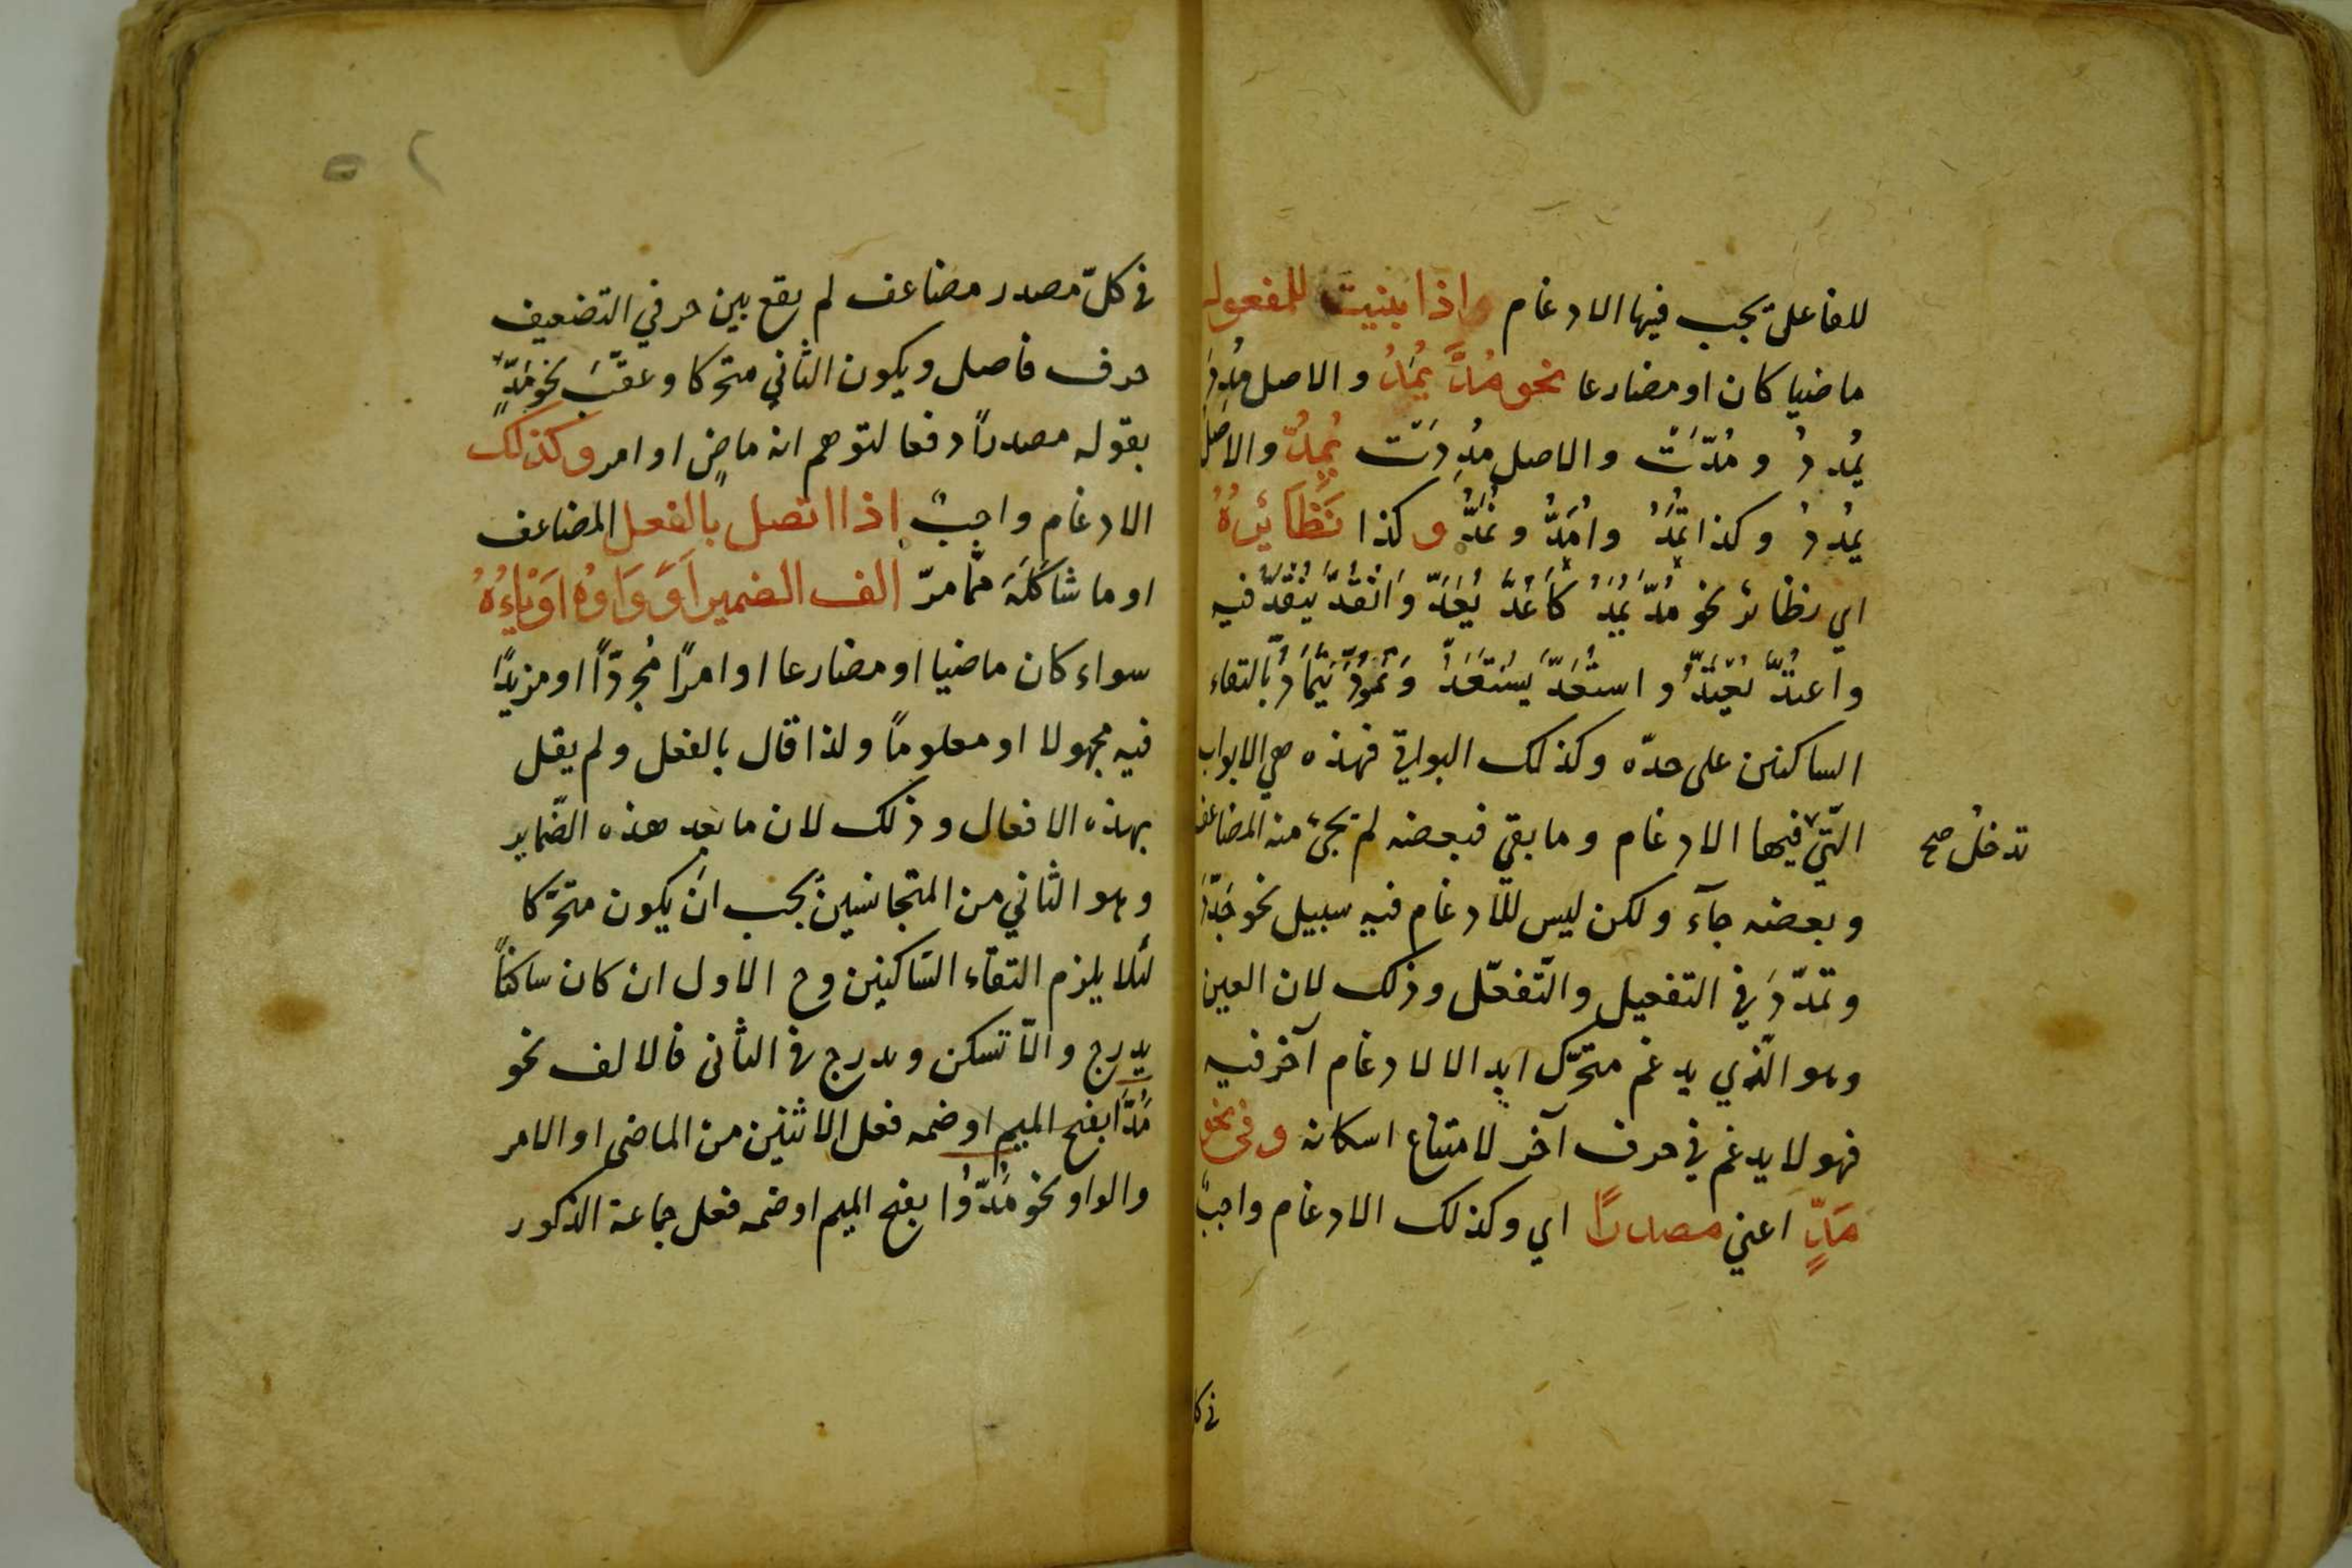 للفاعل يجب فيها الادغام واذا بنيت للمفعول
ماضيا كان او مضارعا نحو مُدَّ يُمَدُّ والاصل مُدِدَ
يُمْدَدُ و مُدَّتْ والاصل مُدِدَتْ يُمِدُّ والاصل
يُمْدِدُ وكذا تُمَدُّ واُمَدُّ ونُمَدُّ وكذا نَظَائِرُهُ
اي نظائر نحو مُدَّ يُمَدُّ كَاُعِدَّ يُعَدُّ وَانْقُدَّ يُنْقَدُّ فيه
واعتُدَّ يُعْتَدُّ و استُعِدَّ يُسْتَعَدُّ وَتُمُودَّ يُتَمَادُّ بالتقاء
الساكنين على حدّه وكذلك البواقي فهذه هي الابواب
الّتي فيها الادغام وما بقي فبعضه لم يجئ منه المضاعف
تدخل صح
وبعضه جآء ولكن ليس للادغام فيه سبيل نحو
وتمدّدَ في التفعيل والتّفعّل وذلك لان العين
وهو الّذي يدغم متحرّك ابدا لادغام آخر فيه
فهو لا يدغم في حرف آخر لامتناع اسكانه وفى نحو
مَدٍّ اعني مصدرًا اي وكذلك الادغام واجبٌ
في كل
في كلّ مصدر مضاعف لم يقع بين حرفي التضعيف
حرف فاصل ويكون الثّاني متحركا وعقّبَ نحو مَدٍّ
بقوله مصدراً دفعا لتوهم انه ماضٍ او امر وكذلك
الادغام واجبٌ اذا اتصل بالفعل المضاعف
او ما شاكَلَهَ ممّا مرّ الف الضمير اَوْ وَاوُهُ اوْيَاءُهُ
سواء كان ماضيا او مضارعا او امرًا مُجردّاً او مزيدًا
فيه مجهولا او معلوماً ولذا قال بالفعل ولم يقل
بهذه الافعال وذلك لان ما بعد هذه الضّماير
وهو الثاني من المتجانسين يجب ان يكون متحرّكا
لئلا يلزم التقآء السّاكنين وح الاول ان كان ساكناً
يدرج والاّ تسكن ويدرج في الثانى فالالف نحو
مُدَّا بفتح الميم او ضمه فعل الاثنين من الماضى او الامر
والواو نحو مُدُّوا بفتح الميم او ضمه فعل جماعة الذكور